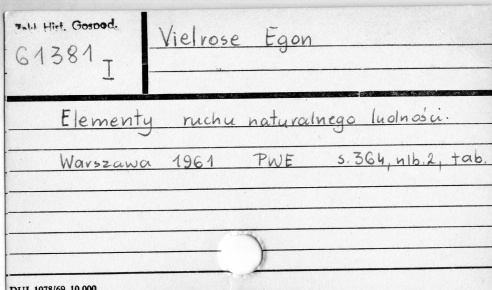 Zakł. Hist. Gospod.
61381 I
Vielrose Egon
Elementy ruchu naturalnego ludności.
Warszawa 1961 PWE s. 364, nlb. 2, tab.
DUJ 1078/69 10.000